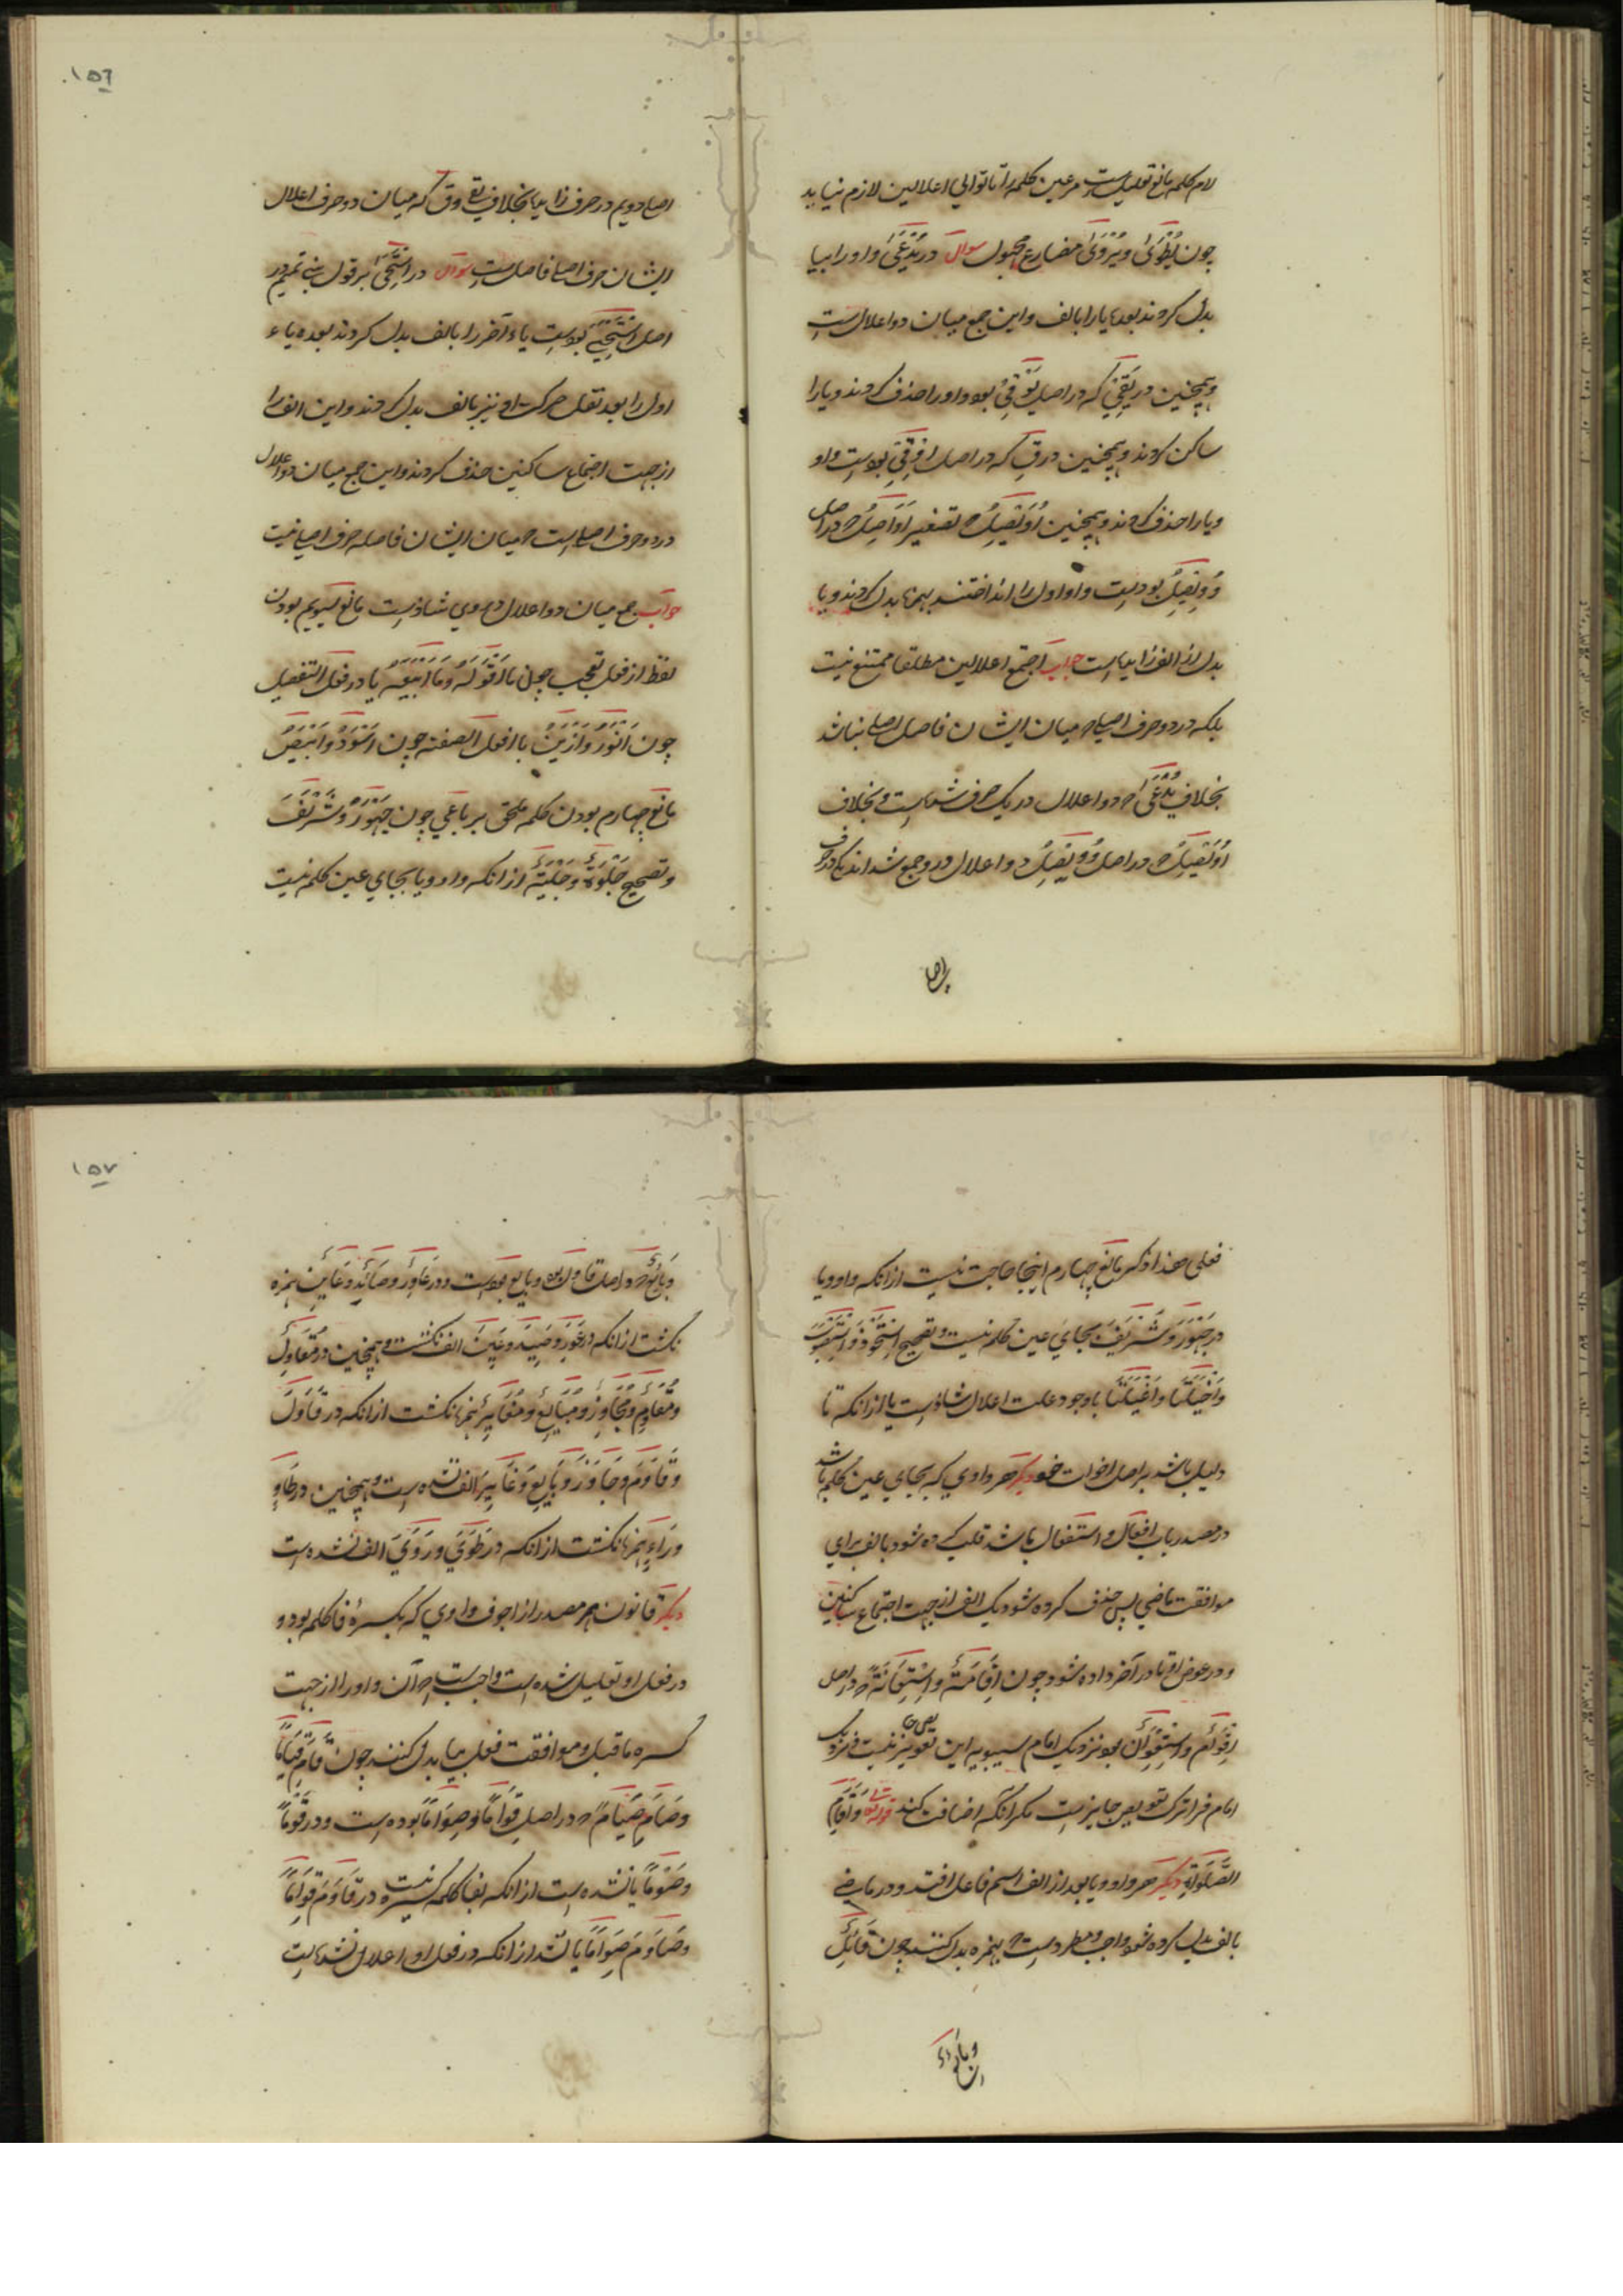 لام کلمه مانع تعلیل است مر عین کلمه را تا توالی اعلالین لازم نیاید
چون یُطْوَیٰ و یُرْوَیٰ مضارع مجهول سوال در یُدْعَیٰ واو را بیا
بدل کردند بعده یا را بالف و این جمع میان دو اعلال ست
و همچنین در یَقِیْ که در اصل یَوْقِیُ بود واو را حذف کردند و یا را
ساکن کردند و همچنین در قِ که در اصل اِوْقِیْ بودست واو
و یا را حذف کردند و همچنین اُوَیْصِلٌ تصغیر اَوَاصِلٌ در اصل
وُوَیْصِلٌ بودست واو اول را بهمزه بدل کردند و یا
بدل از الف زاید است جواب اجتماع اعلالین مطلقا ممتنع نیست
بلکه در دو حرف اصلی که میان ایشان فاصل اصلی نباشد
بخلاف یُدْعَیٰ که دو اعلال در یک حرف شده است و بخلاف
اُوَیْصِلٌ که در اصل وُوَیْصِلٌ دو اعلال درو جمع شده اند یکی در حرف
اصلی
۱۵۶
اصلی دویم در حرف زاید بخلاف یقی و ق که میان دو حرف اعلال
ایشان حرف اصلی فاصل ست سوال در اِسْتَحَیٰ بر قول بنی تمیم در
اصل اِسْتَحْیَیَ بودست یاء آخر را بالف بدل کردند بعده یاء
اول را بعد نقل حرکت او نیز بالف بدل کردند و این الف را
از جهت اجتماع ساکنین حذف کردند و این جمع میان دو اعلال
در دو حرف اصلی است که میان ایشان فاصله حرف اصلی نیست
جواب جمع میان دو اعلال در وی شاذ ست مانع سیوم بودن
لفظ از فعل تعجب چون مَا اَقْوَلَهُ وَمَا اَبْیَعَهُ یا در فعل التفضیل
چون اَنْوَرُ وَاَزْیَنُ یا افعل الصفه چون اَسْوَدُ وَاَبْیَضُ
مانع چهارم بودن کلمه ملحق برباعی چون جَهْوَرَ وَشَرْیَفَ
و تصحیح جَلْوَةٌ وَ جَلْیَةٌ از انکه واو و یا بجای عین کلمه نیست
فعلی هذا ذکر مانع چهارم اینجا حاجت نیست از انکه واو و یا
در جَهْوَرَ وَشَرْیَفَ بجای عین کلمه نیست و تصحیح اِسْتَحْوَذَ وَاسْتَصْوَبَ
وَاَخْیَلَتْ وَاَغْیَلَتْ با وجود علت اعلال شاذ ست یا از انکه تا
دلیل باشد بر اصل اخوات خود دیگر هر واوی که بجای عین کلمه باشد
در مصدر باب افعال و استفعال باشد قلب کرده شود بالف برای
موافقت ماضی پس حذف کرده شود یک الف از جهت اجتماع ساکنین
و در عوض او تا در آخر داده شود چون اِقَامَةٌ وَاِسْتِقَامَةٌ که در اصل
اِقْوَامٌ وَاِسْتِقْوَامٌ بود نزدیک امام سیبویه این تعویض نیست و نزدیک
امام فرا ترک تعویض جایز ست مگر انکه اضافت کنند قوله تعالی وَاِقَامِ
الصَّلٰوةِ دیگر هر واو و یا بعد از الف اسم فاعل افتد و در ماضی
بالف بدل کرده شود واجب و مطرد ست که بهمزه بدل کنند چون قَائِلٌ
وبائع
۱۵۷
وَبَائِعٌ که در اصل قاول و بایع بودست و در عَاوِرٍ وصَایِدٍ وعَایِنٍ همزه
نگشت از انکه در عَوِرَ وصَیِدَ وعَیِنَ الف نگشت و همچنین در مُقَاوِلٌ
و مُقَاوِمٌ ومُجَاوِزٌ ومُبَایِعٌ ومُغَایِرٌ همزه نگشت از انکه در قَاوَلَ
وَقَاوَمَ وجَاوَزَ وبَایَعَ وغَایَرَ الف نشده است و همچنین در طَاوٍ
ورَاوٍ همزه نگشت از انکه در طَوَیَ ورَوَیَ الف نشده است
دیگر قانون هر مصدر از اجوف واوی که بکسرهٔ فا کلمه بود و
در فعل او تعلیل شده است واجب ست که آن واو را از جهت
کسره ماقبل و موافقت فعل بیا بدل کنند چون قَامَ قِیَامًا
وصَامَ صِیَامًا که در اصل قِوَامًا وصِوَامًا بوده است و در قَوْمًا
وصَوْمًا یا نشده است از انکه بفا کلمه کسره نیست در قَاوَمَ قِوَامًا
وصَاوَمَ صِوَامًا یا نشد از انکه در فعل او اعلال نشده است